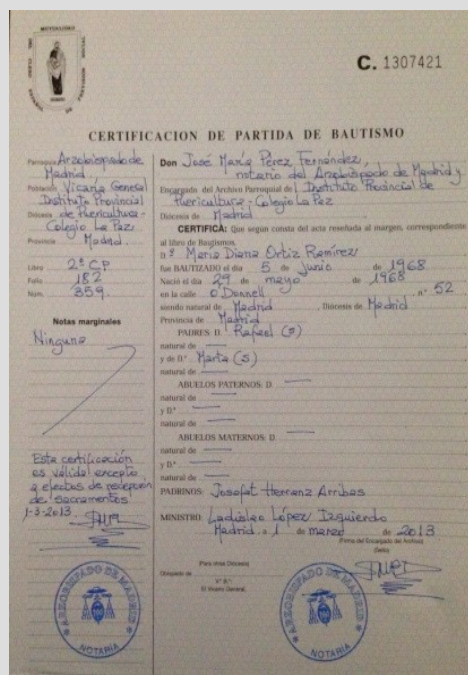 MUTUALIDAD
DEL CLERO
ESPAÑOL
DE
PREVISION
SOCIAL
C. 1307421
CERTIFICACION DE PARTIDA DE BAUTISMO
Parroquia Arzobispado de
Madrid
Población Vicaría General
Instituto Provincial
Diócesis de Puericultura -
Colegio La Paz
Provincia Madrid.
Libro 2º CP
Folio 182
Núm. 359.
Notas marginales
Ninguna
Esta certificación
es válida excepto
a efectos de recepción
de sacramentos
1-3-2013.
Don José María Pérez Fernández,
notario del Arzobispado de Madrid y
Encargado del Archivo Parroquial de Instituto Provincial de
Puericultura - Colegio La Paz
Diócesis de Madrid
CERTIFICA: Que según consta del acta reseñada al margen, correspondiente
al libro de Bautismos,
D.ª María Diana Ortiz Ramírez
fue BAUTIZADO el día 5 de Junio de 1968
Nació el día 29 de mayo de 1968
en la calle O'Donnell n° 52
siendo natural de Madrid, Diócesis de Madrid
Provincia de Madrid
PADRES: D. Rafael (s)
natural de
y de D.ª Marta (s)
natural de
ABUELOS PATERNOS: D.
natural de
y D.ª
natural de
ABUELOS MATERNOS: D.
natural de
y D.ª
natural de
PADRINOS: Josofat Herranz Arribas
MINISTRO: Ladislao López Izquierdo
Madrid a 1 de marzo de 2013
(Firma del Encargado del Archivo)
(Sello)
(Para otras Diócesis)
Obispado de
V.º B.º
El Vicario General,
ARZOBISPADO DE MADRID
NOTARIA
ARZOBISPADO DE MADRID
NOTARIA